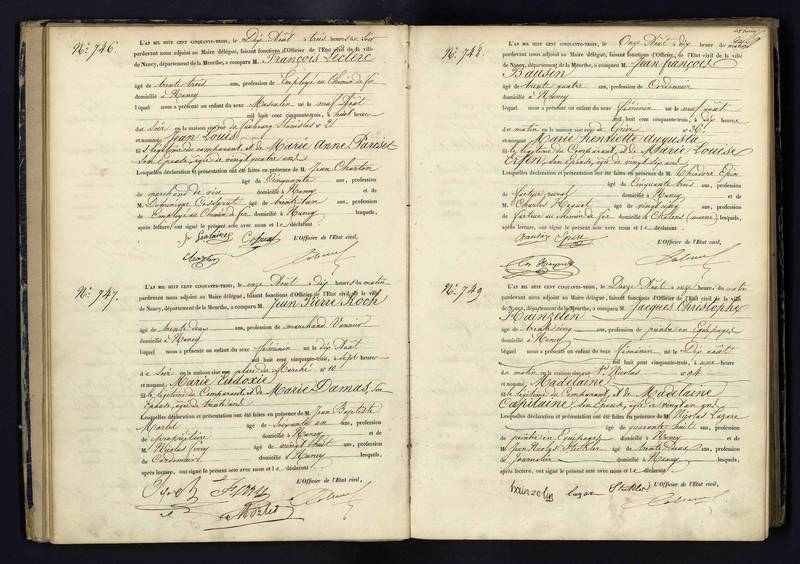 N.° 746.
L'AN MIL HUIT CENT CINQUANTE-TROIS, le Dix Août à trois heures du soir
pardevant nous adjoint au Maire délégué, faisant fonctions d'Officier de l'Etat civil de la ville
de Nancy, département de la Meurthe, a comparu M. François Leclerc
âgé de trente trois ans, profession de Employé au Chemin de fer
domicilié à Nancy
lequel nous a présenté un enfant du sexe Masculin né le neuf Août
mil huit cent cinquante-trois, à huit heures
du soir en la maison sise rue du faubourg Stanislas n° 21
et nommé Jean Louis
fils légitime du comparant, et de Marie Anne Pariset
son épouse, âgée de vingt quatre ans
Lesquelles déclaration et présentation ont été faites en présence de M. Jean Charton
âgé de cinquante ans, profession
de marchand de vin domicilié à Nancy et de
M. Dominique âgé de trente un ans, profession
de Employé au Chemin de fer domicilié à Nancy lesquels,
après lecture, ont signé le présent acte avec nous et le déclarant.
L'Officier de l'Etat civil,
N.° 747.
L'AN MIL HUIT CENT CINQUANTE-TROIS, le onze Août à dix heures du matin
pardevant nous adjoint au Maire délégué, faisant fonctions d'Officier de l'Etat civil de la ville
de Nancy, département de la Meurthe, a comparu M. Jean Pierre Roch
âgé de trente deux ans, profession de marchand Vanneur
domicilié à Nancy
lequel nous a présenté un enfant du sexe féminin née le dix Août
mil huit cent cinquante-trois, à sept heures
du soir en la maison sise place du Marché n° 10
et nommé Marie Eudoxie
fille légitime du Comparant, et de Marie Damas, son
épouse, âgée de trente ans
Lesquelles déclaration et présentation ont été faites en présence de M. Jean Baptiste
Morlet âgé de soixante un ans, profession
de propriétaire domicilié à Nancy et de
M. Nicolas Ferry âgé de vingt huit ans, profession
de Cordonnier domicilié à Nancy lesquels,
après lecture, ont signé le présent acte avec nous et le déclarant.
L'Officier de l'Etat civil,
N.° 748.
L'AN MIL HUIT CENT CINQUANTE-TROIS, le Onze Août à dix heures du matin
pardevant nous adjoint au Maire délégué, faisant fonctions d'Officier de l'Etat civil de la ville
de Nancy, département de la Meurthe, a comparu M. Jean françois
Bausen
âgé de trente quatre ans, profession de Cordonnier
domicilié à Nancy
lequel nous a présenté un enfant du sexe féminin née le neuf août
mil huit cent cinquante-trois, à dix heures
du matin en la maison sise rue de Grève n° 36
et nommé Marie Henriette Augusta
fille légitime du Comparant, et de Marie Louise
son épouse, âgée de vingt six ans
Lesquelles déclaration et présentation ont été faites en présence de M. Théodore
âgé de Cinquante trois ans, profession
de facteur rural domicilié à Nancy et de
M. Charles âgé de vingt cinq ans, profession
de facteur au Chemin de fer domicilié à Chalons (marne) lesquels,
après lecture, ont signé le présent acte avec nous et le déclarant.
L'Officier de l'Etat civil,
N.° 749
L'AN MIL HUIT CENT CINQUANTE-TROIS, le Douze Août à onze heures du matin
pardevant nous adjoint au Maire délégué, faisant fonctions d'Officier de l'Etat civil de la ville
de Nancy, département de la Meurthe, a comparu M. Jacques Christophe
Hainzelin
âgé de trente cinq ans, profession de peintre en Equipages
domicilié à Nancy
lequel nous a présenté un enfant du sexe féminin née le Dix août
mil huit cent cinquante-trois, à une heure
du matin en la maison sise rue St. Nicolas n° 94
et nommé Madelaine
fille légitime du Comparant, et de Madelaine
Capelaine, son épouse, âgée de vingt un ans
Lesquelles déclaration et présentation ont été faites en présence de M. Nicolas Lazare
âgé de quarante huit ans, profession
de peintre en Equipages domicilié à Nancy et de
M. Jean Nicolas Stekler âgé de trente deux ans, profession
de Journalier domicilié à Nancy lesquels,
après lecture, ont signé le présent acte avec nous et le déclarant.
L'Officier de l'Etat civil,
hainzelin lazar Stekler